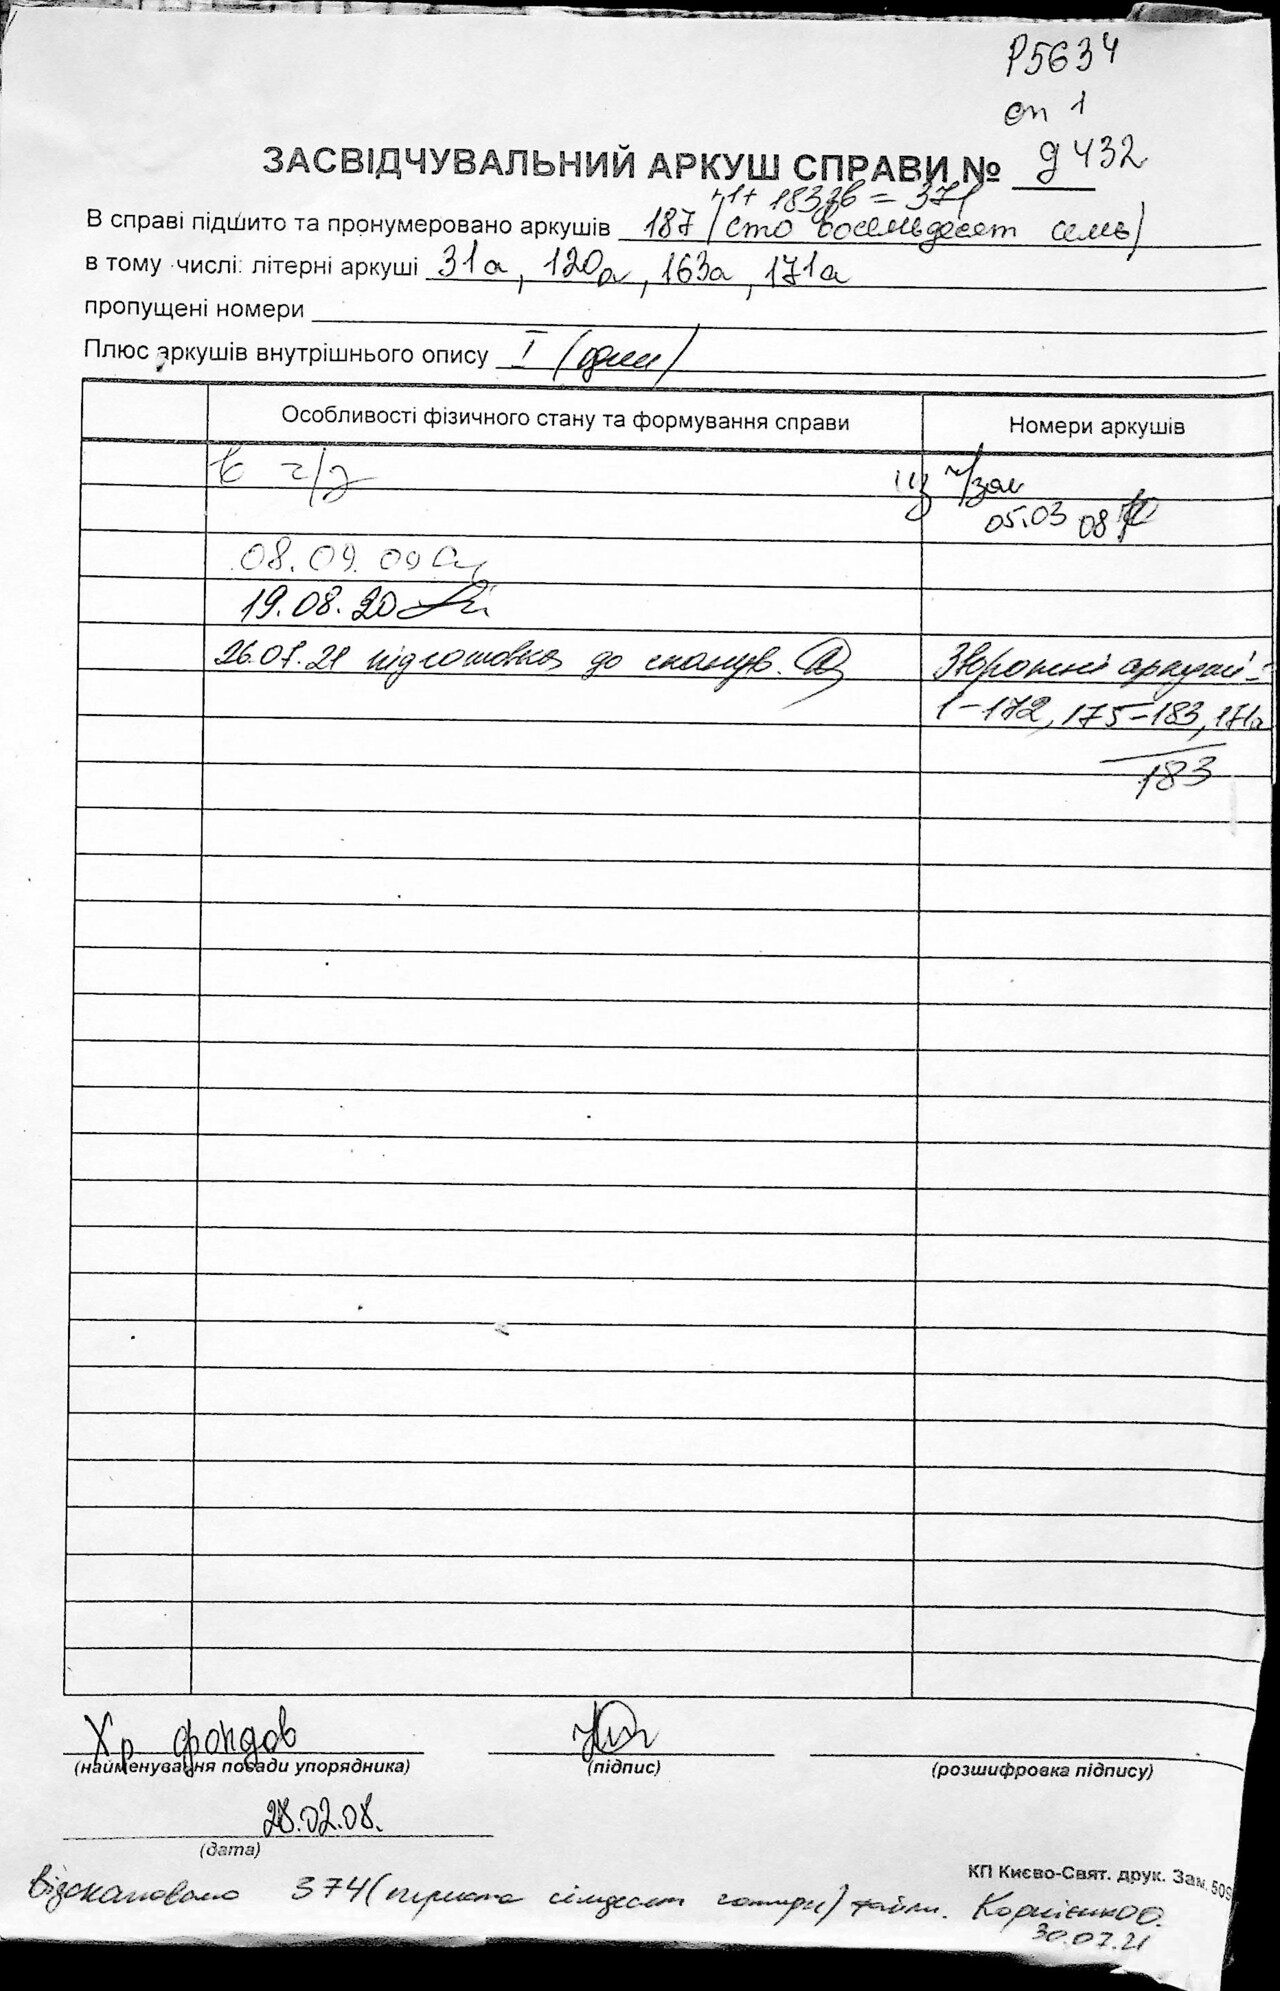 Р5634
оп 1
ЗАСВІДЧУВАЛЬНИЙ АРКУШ СПРАВИ № д 432
+1+ 183зв = 371
В справі підшито та пронумеровано аркушів 187 (сто восемьдесят семь)
в тому числі: літерні аркуші 31а, 120а, 163а, 171а
пропущені номери
Плюс аркушів внутрішнього опису I (один)
Особливості фізичного стану та формування справи Номери аркушів
05.03 08
08.09.09
19.08.20
26.07.21 підготовка до сканув. Зворотні аркуші -
1-172, 175-183, 171а
183
Хр фондов
(найменування посади упорядника) (підпис) (розшифровка підпису)
28.02.08.
(дата)
КП Києво-Свят. друк. Зам. 509
Відскановано 374 (триста сімдесят чотири) файли. Корнієнко О.
30.07.21